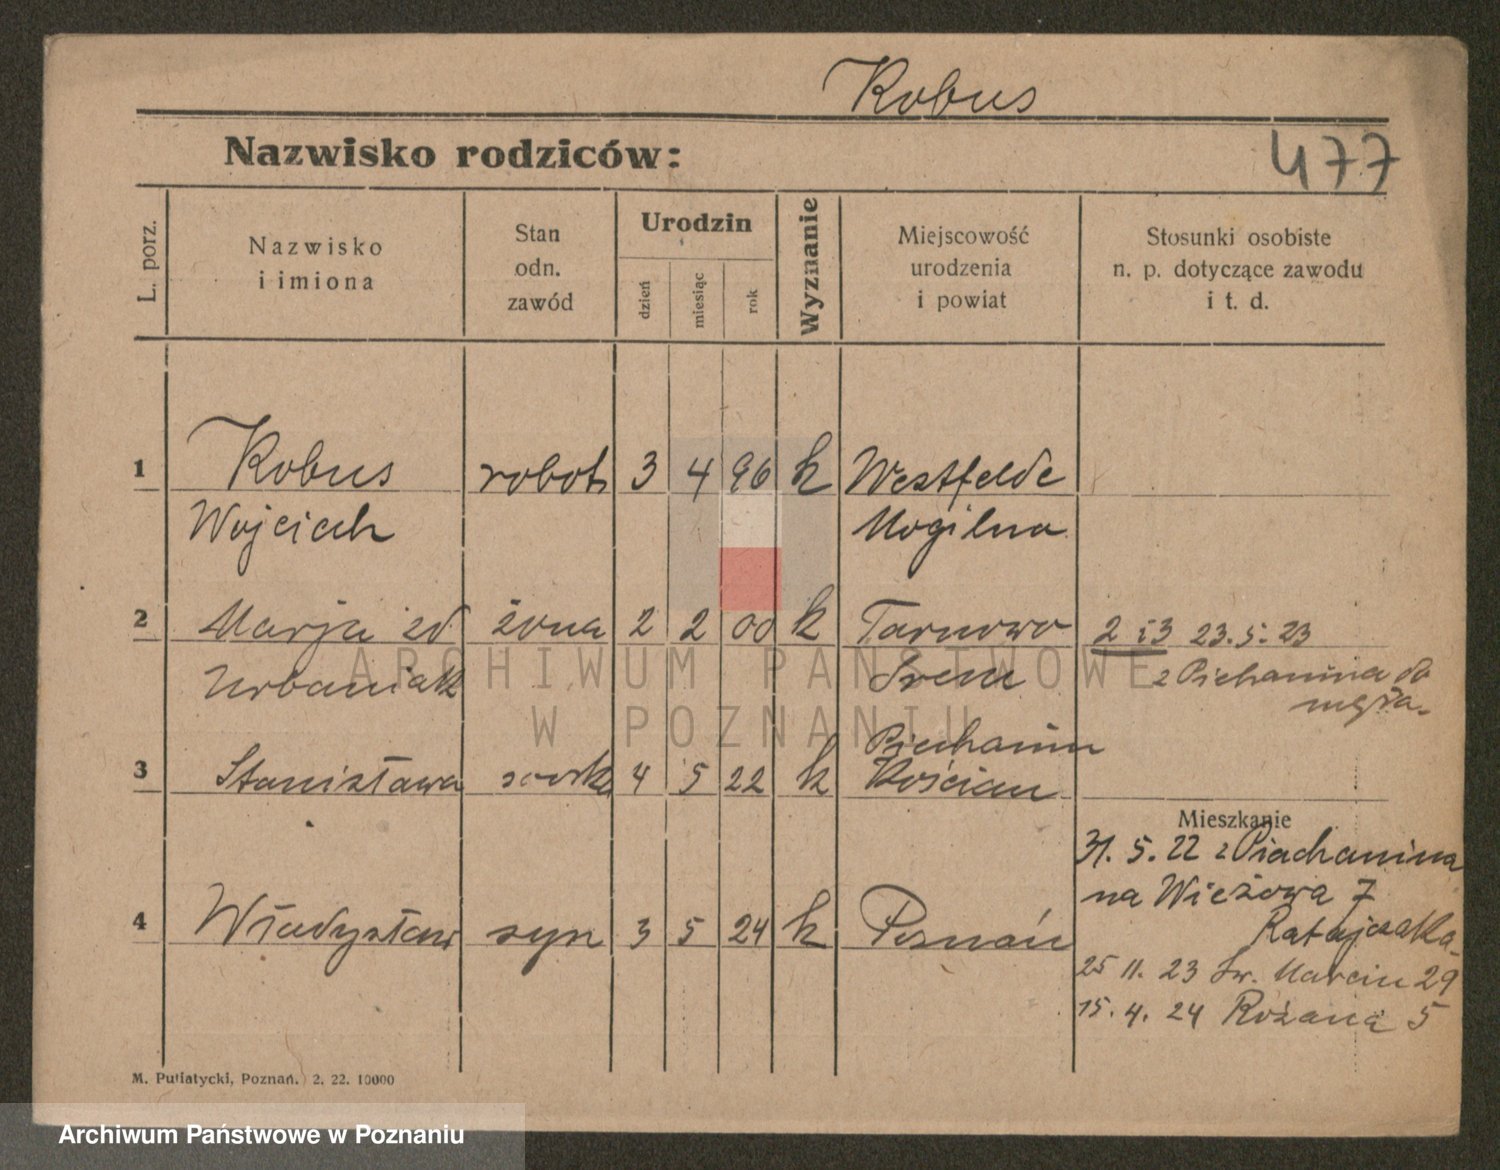 Kobus
Nazwisko rodziców:
477
L. porz.
Nazwisko
i imiona
Stan
odn.
zawód
Urodzin
dzień
miesiąc
rok
Wyznanie
Miejscowość
urodzenia
i powiat
Stosunki osobiste
n. p. dotyczące zawodu
i t. d.
1 Kobus robot. 3 4 96 k Westfelde
Wojciech Mogilno
2 Marja zd żona 2 2 00 k Tarnowo 2 i 3 23.5.23
Urbaniak Srem z Piechanina do
męża.
Piechanin
3 Stanisława córka 4 5 22 k Kościan
Mieszkanie
31. 5. 22 z Piechanina
na Wieżowa 7
Ratajczaka
4 Władysław syn 3 5 24 k Poznań
25 11. 23 Św. Marcin 29
15. 4. 24 Różana 5
M. Putiatycki, Poznań. 2. 22. 10000
ARCHIWUM PAŃSTWOWE
W POZNANIU
Archiwum Państwowe w Poznaniu